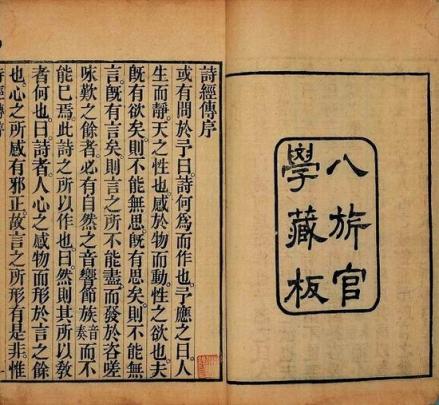 八旂官
學藏板
詩經傳序
或有問於予曰詩何為而作也予應之曰人
生而靜天之性也感於物而動性之欲也夫
既有欲矣則不能無思既有思矣則不能無
言既有言矣則言之所不能盡而發於咨嗟
咏歎之餘者必有自然之音響節族音奏而不
能已焉此詩之所以作也曰然則其所以教
者何也曰詩者人心之感物而形於言之餘
也心之所感有邪正故言之所形有是非惟